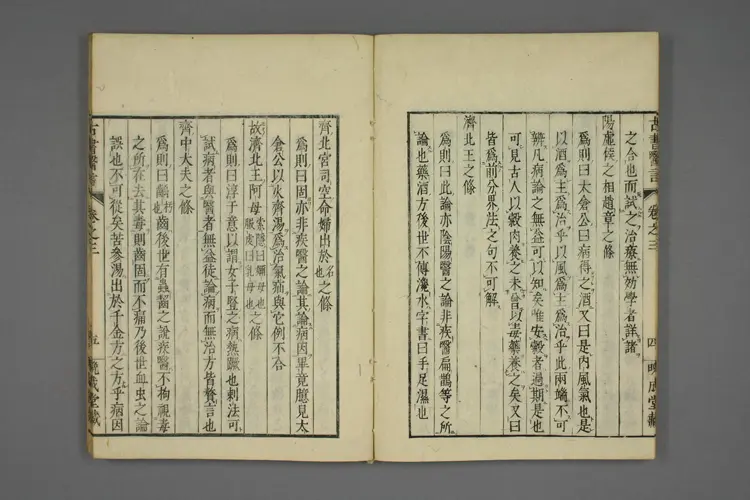 之合也而試之治療無妨學者詳諸
陽虛候之相趙章之條
為則曰太倉公曰病得之酒又曰是內風氣也是
以酒為主為治乎以風為主為治乎此兩端不可
辨凡病論之無益可以知矣唯安穀者過期是也
可見古人以穀肉養之未曾以毒藥養之矣又曰
皆為前分界法之句不可解
濟北王之條
為則曰此論亦陰陽醫之論非疾醫扁鵲等之所
論也藥酒方後世不傳瀺水字書曰手足濕也
古書醫言
卷之三
四
晚成堂藏
齊北宮司空命婦出於名也之條
為則曰固亦非疾醫之論其論病因畢竟臆見太
倉公以火齊湯為治氣疝與它例不合
故濟北王阿母索隱曰嬭母也服虔曰乳母也之條
為則曰淳于意以謂女子豎之病熱蹶也刺法可
試病者與醫者無益徒論病而無治方皆贅言也
齊中大夫之條
為則曰齲朽也齒後世有蟲齧之說疾醫不拘視毒
之所在去其毒則齒固而不痛乃後世血虫之論
誤也不可從矣苦參湯出於千金方之方乎病因
古書醫言
卷之三
五
晚成堂藏